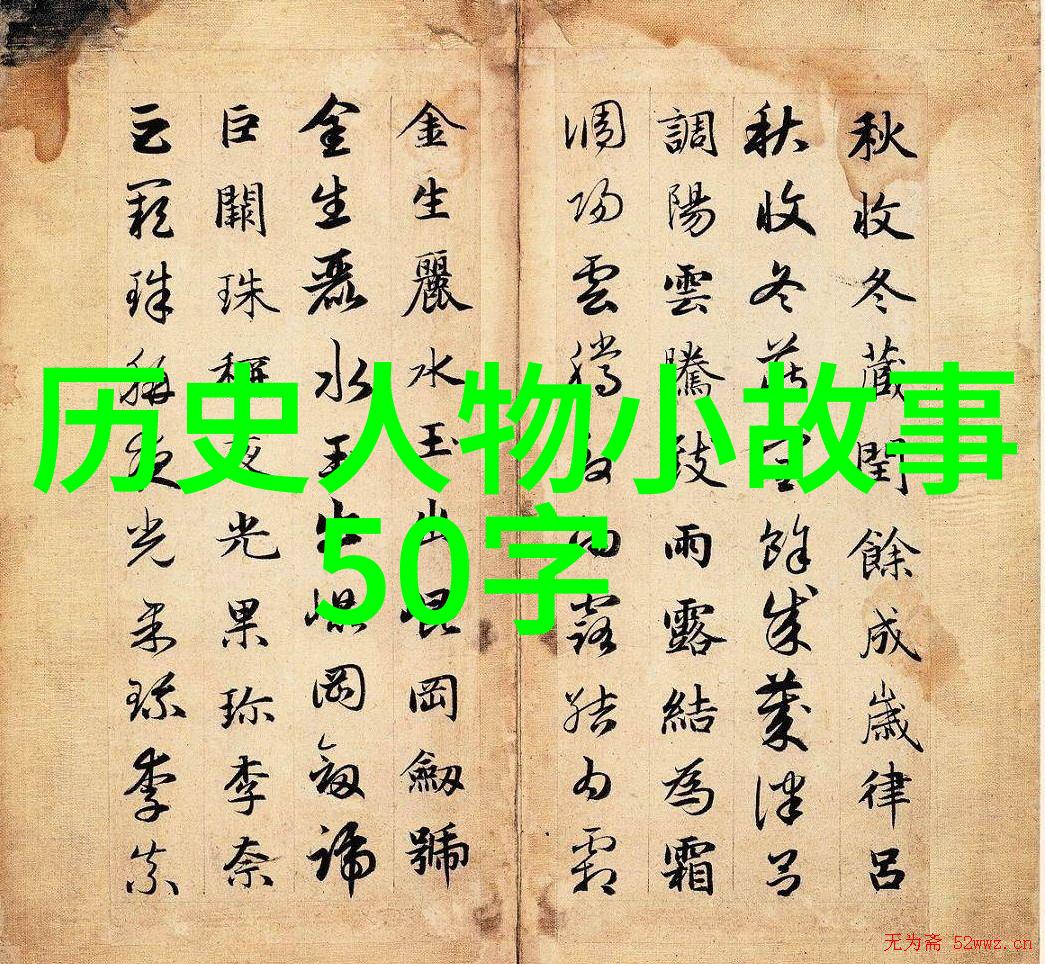 秋收冬藏閏餘成歲律呂
秋收冬藏閏餘成歲律呂
調陽雲騰致雨露結為霜
調陽雲騰致雨露結為霜
金生麗水玉出崐岡劒號
金生麗水玉出崐岡劒號
巨闕珠稱夜光果珍李柰
巨闕珠稱夜光果珍李柰
历史人物小故事
50字
无为斋 52wwz.cn